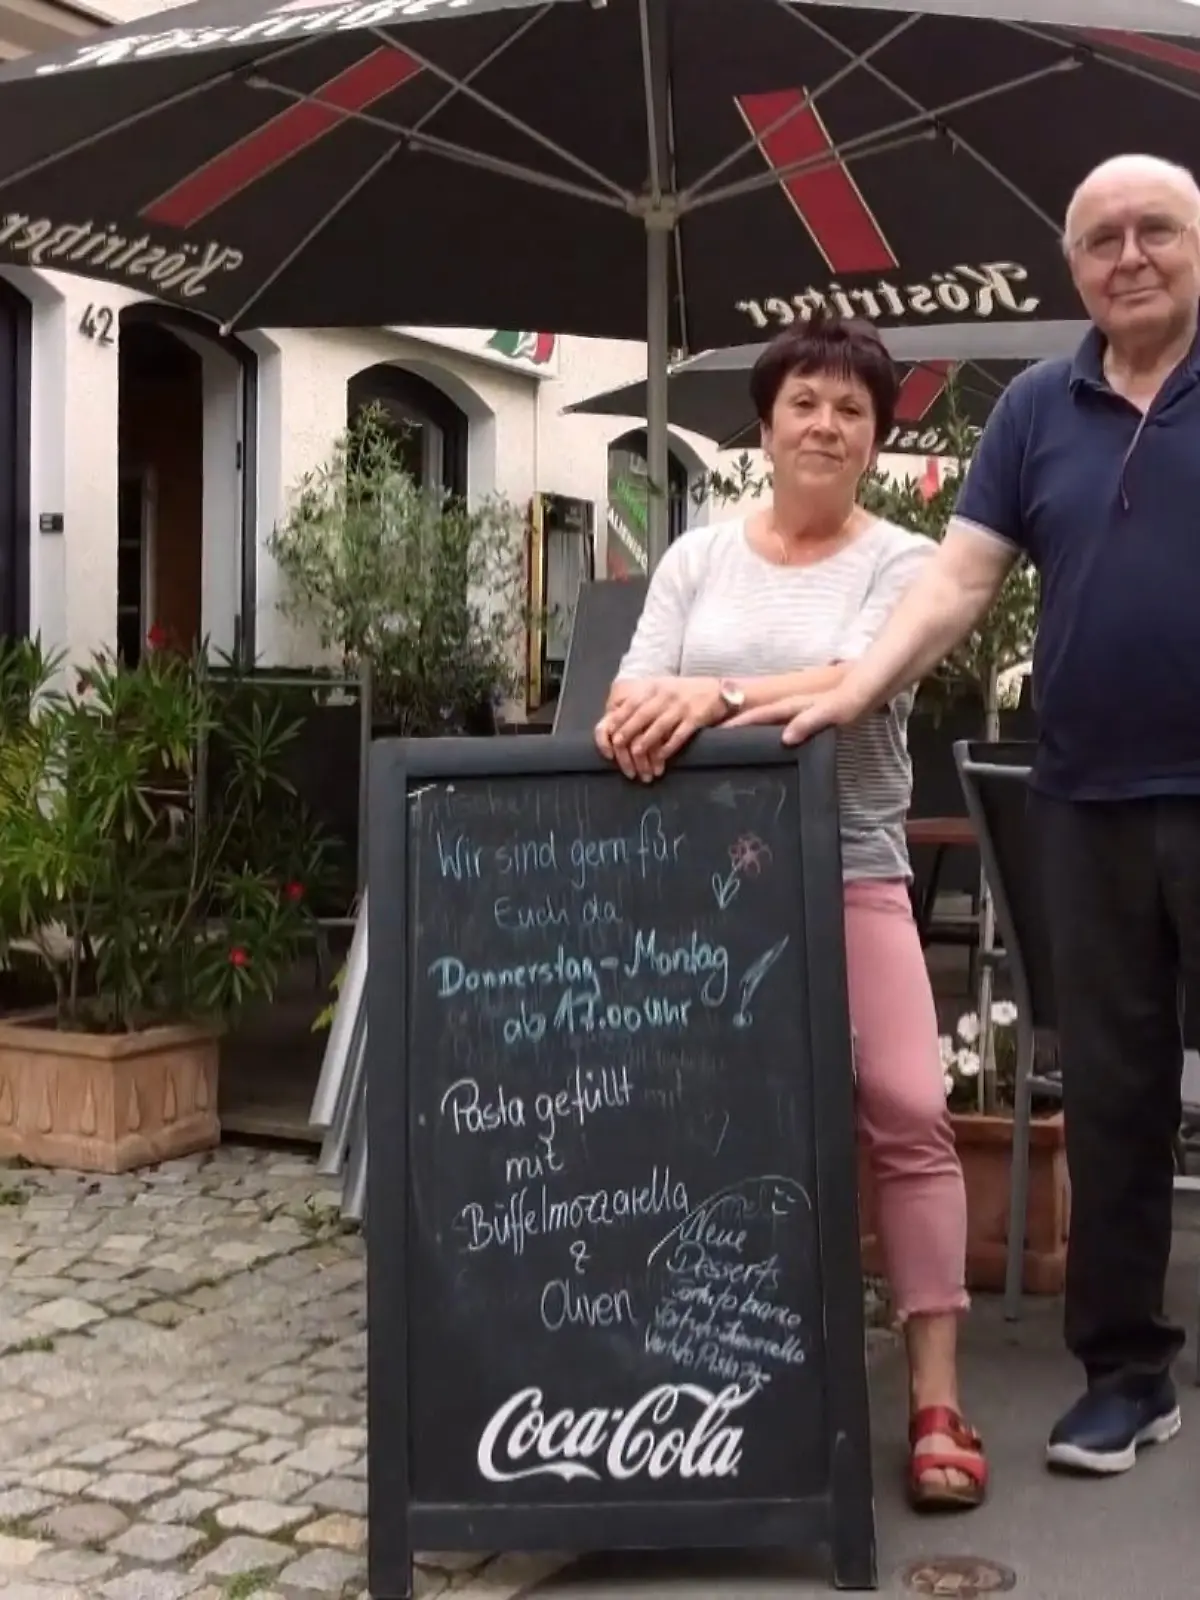 Köstritzer
Köstritzer
Köstritzer
42
Wir sind gern für
Euch da
Donnerstag - Montag
ab 17.00 Uhr !
Pasta gefüllt
mit
Büffelmozzarella
&
Oliven
Neue
Desserts
Tartufo bianco
Tartufo Limoncello
Tartufo Pistazie
Coca-Cola